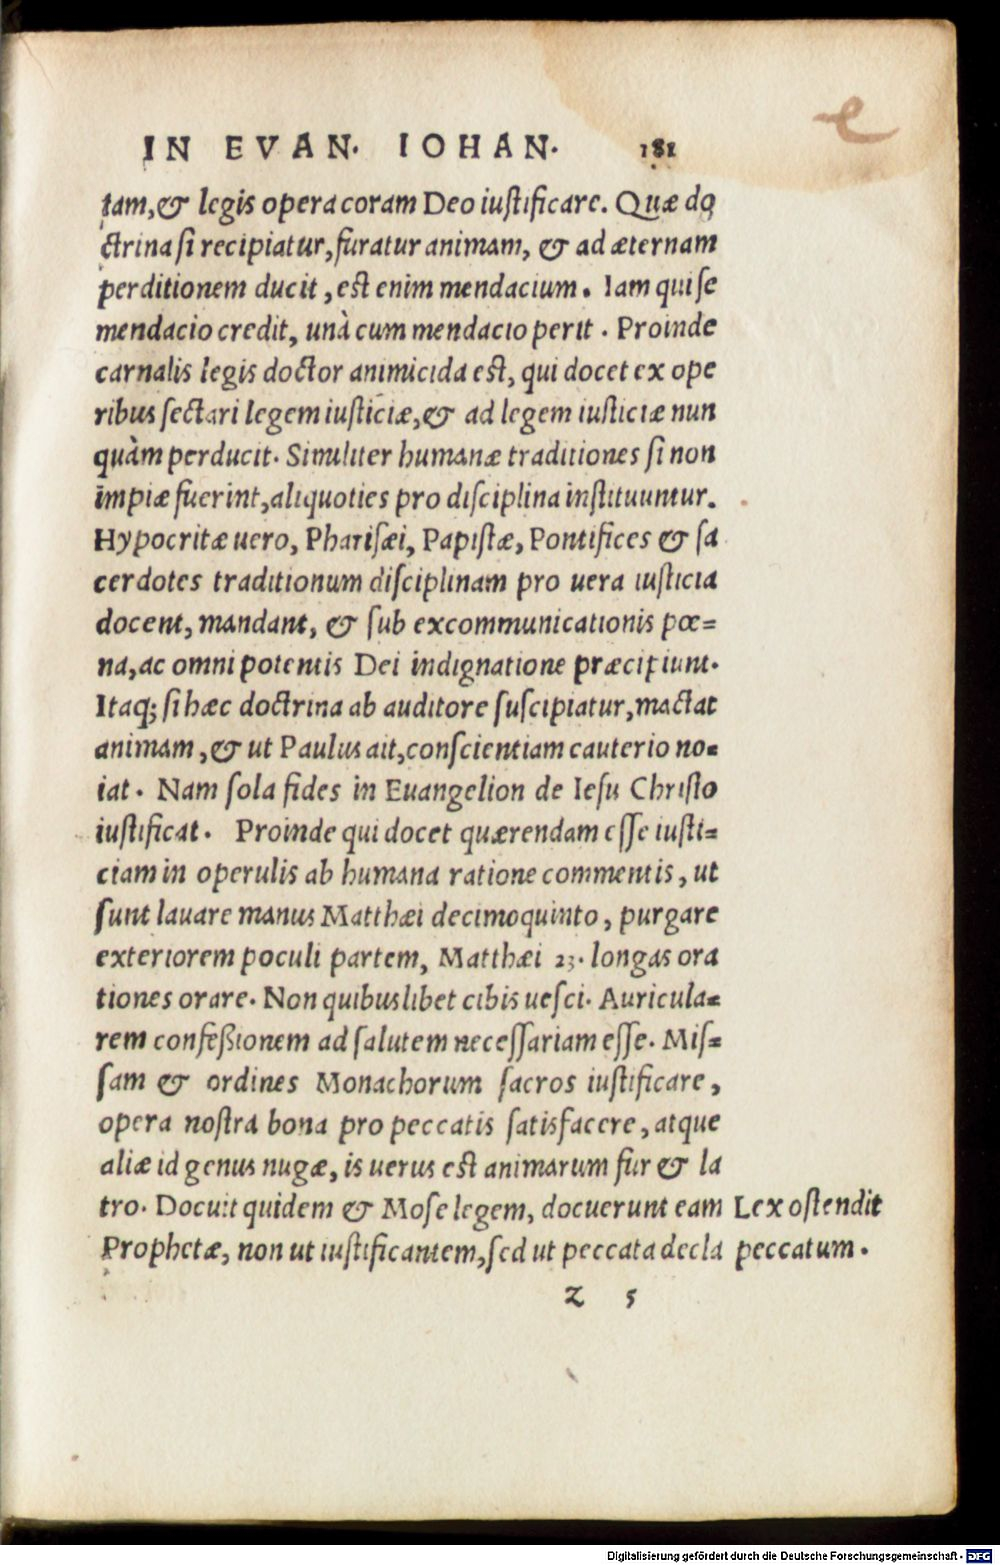 IN EVAN. IOHAN. 181
tam, & legis opera coram Deo iustificare. Quæ do
ctrina si recipiatur, furatur animam, & ad æternam
perditionem ducit, est enim mendacium. Iam qui se
mendacio credit, unà cum mendacio perit. Proinde
carnalis legis doctor animicida est, qui docet ex ope
ribus sectari legem iusticiæ, & ad legem iusticiæ nun
quàm perducit. Similiter humanæ traditiones si non
impiæ fuerint, aliquoties pro disciplina instituuntur.
Hypocritæ uero, Pharisæi, Papistæ, Pontifices & sa
cerdotes traditionum disciplinam pro uera iusticia
docent, mandant, & sub excommunicationis pœ=
na, ac omnipotentis Dei indignatione præcipiunt.
Itaq; si hæc doctrina ab auditore suscipiatur, mactat
animam, & ut Paulus ait, conscientiam cauterio no=
iat. Nam sola fides in Euangelion de Iesu Christo
iustificat. Proinde qui docet quærendam esse iusti=
ciam in operulis ab humana ratione commentis, ut
sunt lauare manus Matthæi decimoquinto, purgare
exteriorem poculi partem, Matthæi 23. longas ora
tiones orare. Non quibuslibet cibis uesci. Auricula=
rem confeßionem ad salutem necessariam esse. Mis=
sam & ordines Monachorum sacros iustificare,
opera nostra bona pro peccatis satisfacere, atque
aliæ id genus nugæ, is uerus est animarum fur & la
tro. Docuit quidem & Mose legem, docuerunt eam
Prophetæ, non ut iustificantem, sed ut peccata decla
Lex ostendit
peccatum.
Z 5
Digitalisierung gefördert durch die Deutsche Forschungsgemeinschaft - DFG